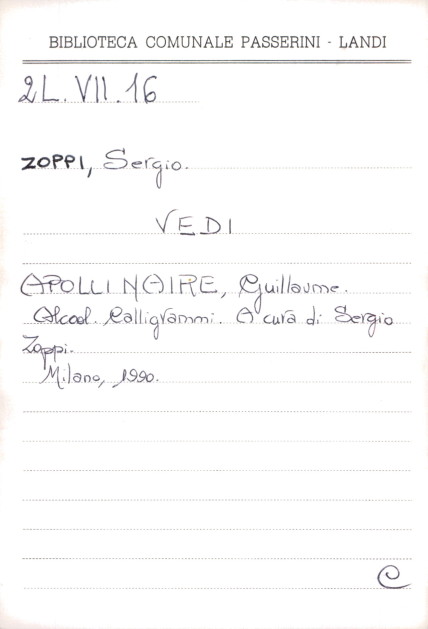 BIBLIOTECA COMUNALE PASSERINI - LANDI
2L.VII.16
ZOPPI, Sergio.
VEDI
APOLLINAIRE, Guillaume.
Alcool. Calligrammi. A cura di Sergio
Zoppi.
Milano, 1990.
C